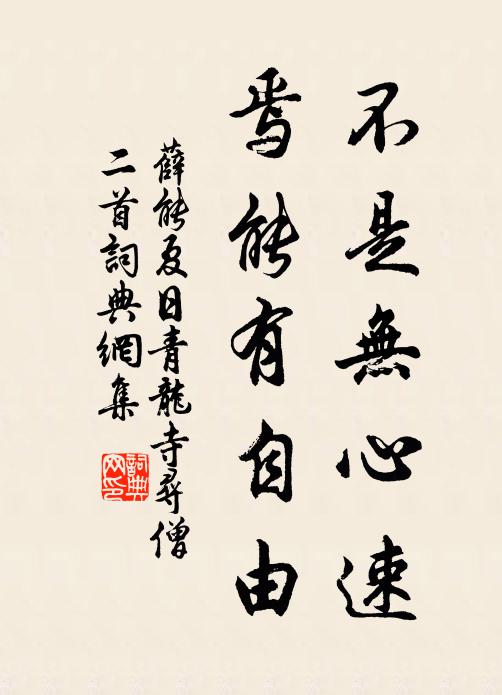 不是無心速
焉能有自由
薛能夏日青龍寺尋僧
二首詞典網集
詞典網印